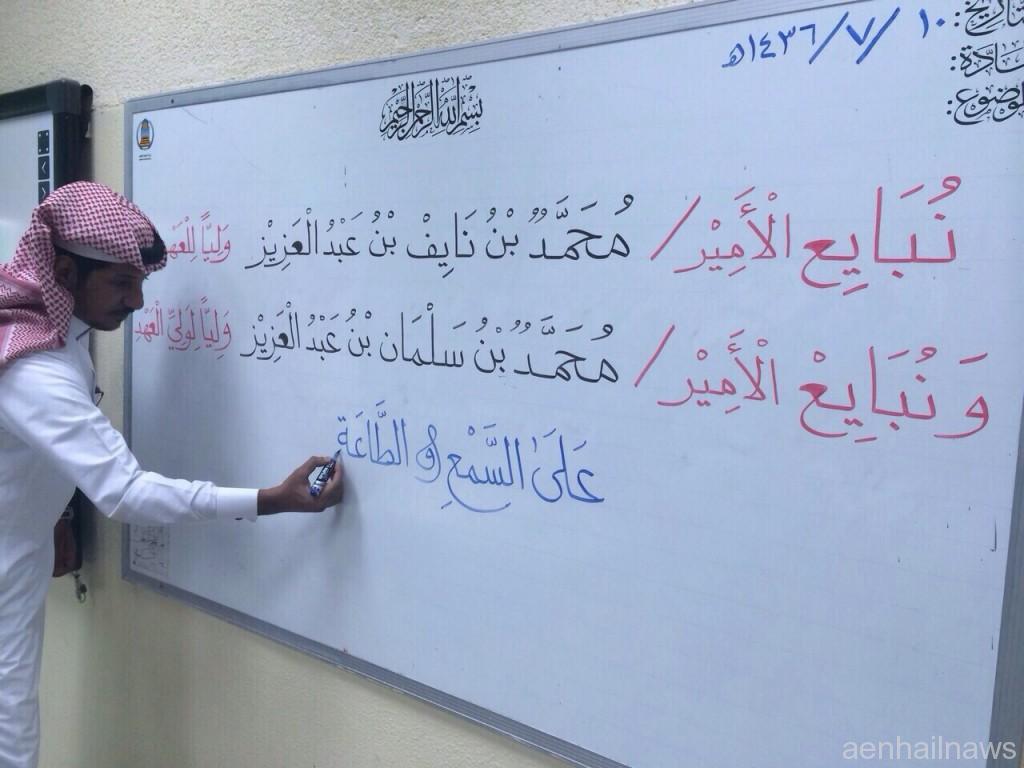 التاريخ: ١٠/٧/١٤٣٦هـ
المادّة:
الموضوع:
بِسْمِ اللَّهِ الرَّحْمَٰنِ الرَّحِيمِ
نُبَايِع الْأَمِيْر/ مُحَمَّدُ بْنُ نَايِفْ بْنُ عَبْدُ الْعَزِيْز وَلِيًّا لِلْعَهْدِ
وَ نُبَايِعْ الْأَمِيْر/ مُحَمَّدُ بْنُ سَلْمَان بْنُ عَبْدُ الْعَزِيْز وَلِيًّا لِوَلِيِّ الْعَهْدِ
عَلَىٰ السَّمْعِ وَ الطَّاعَة
aenhailnaws